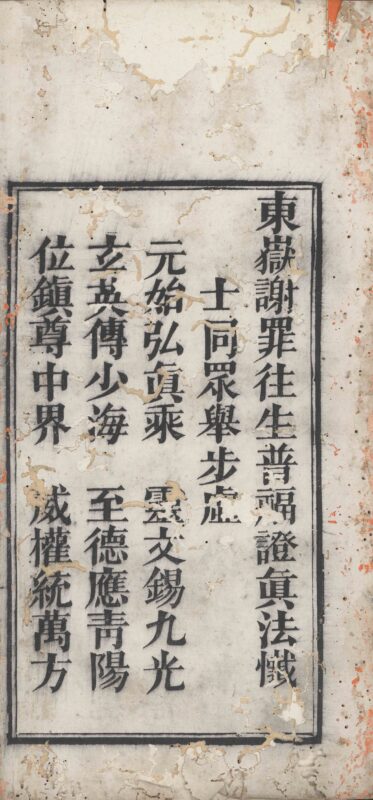 東嶽謝罪往生普福證眞法懺
士同眾舉步虛
元始弘眞乘 靈文錫九光
玄英傳少海 至德應靑陽
位鎭尊中界 威權統萬方